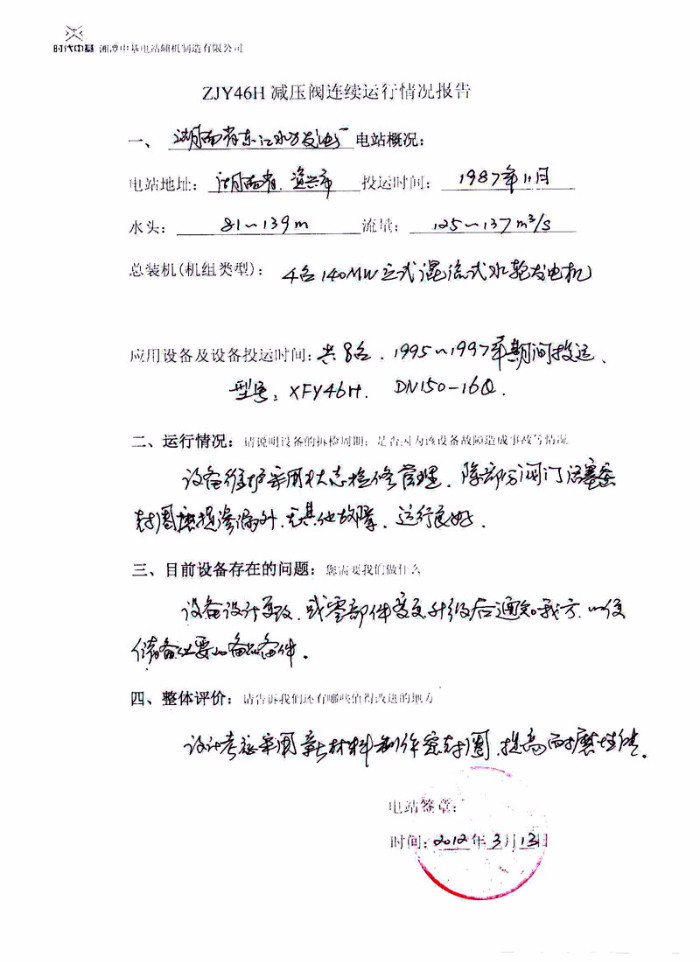 时代中基 湘潭中基电站辅机制造有限公司
ZJY46H 减压阀连续运行情况报告
一、 湖南省东江水力发电厂 电站概况：
电站地址： 湖南省．资兴市 投运时间： 1987年11月
水头： 81～139m 流量： 125～137m³/s
总装机(机组类型)： 4台140MW立式混流式水轮发电机
应用设备及设备投运时间：共8台．1995～1997年期间投运、
型号：XFY46H． DN150-16Q．
二、运行情况：请说明设备的拆检周期；是否因为该设备故障造成事故等情况
设备维护采用状态检修管理．除部分阀门活塞密
封圈磨损渗漏外．无其他故障．运行良好．
三、目前设备存在的问题：您需要我们做什么
设备设计更改．或零部件变更升级后通知我方．以便
储备必要的备品备件．
四、整体评价：请告诉我们还有哪些值得改进的地方
设计考虑采用新材料制作密封圈．提高耐磨性能．
电站签章：
时间：2012年3月13日